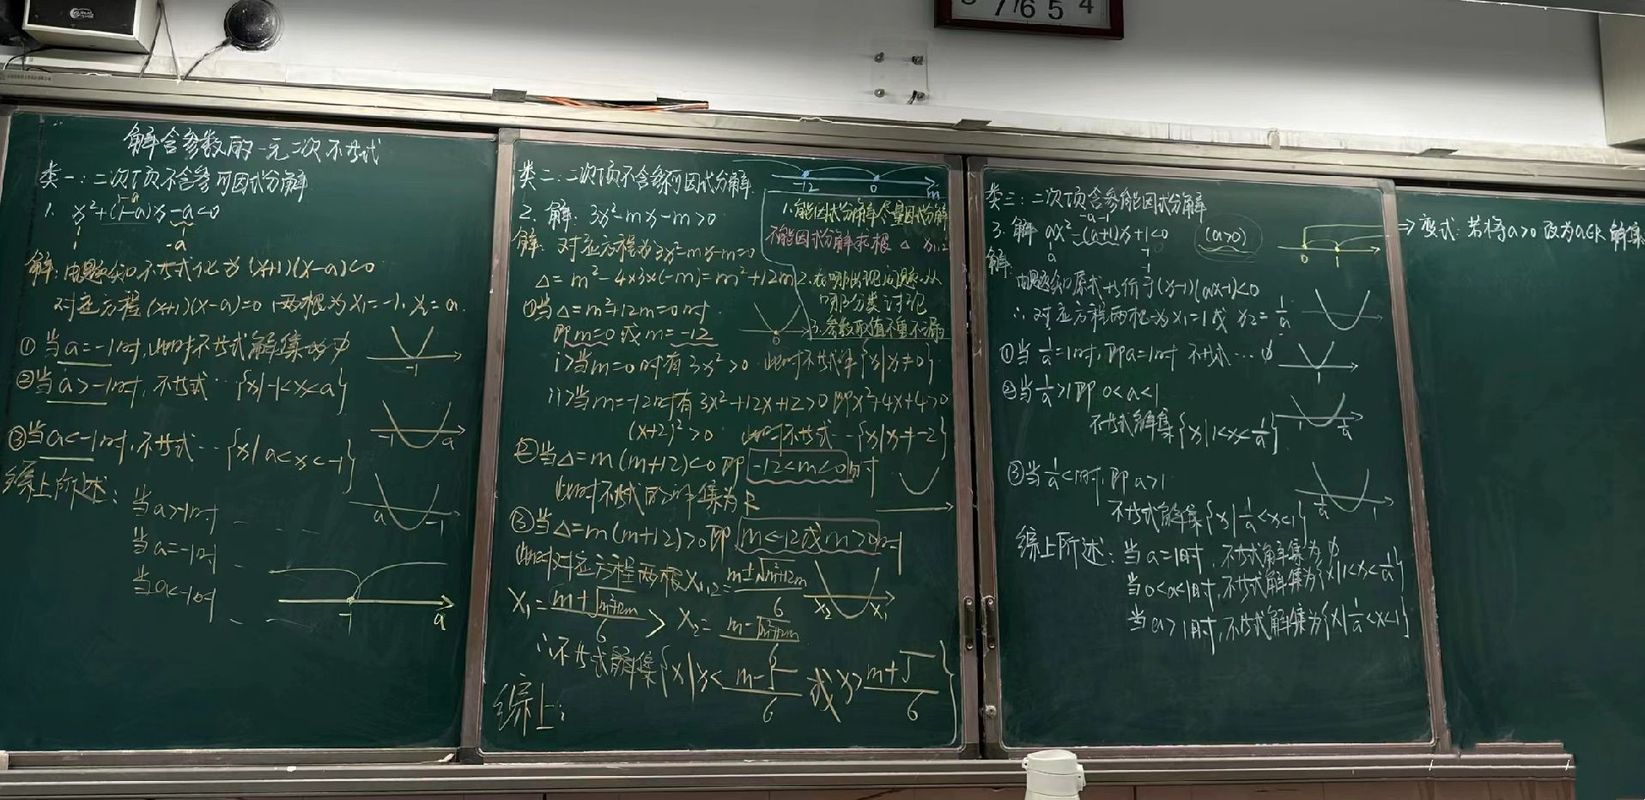 7 6 5 4
解含参数的一元二次不等式
类一：二次项不含参可因式分解
1. x²+(1-a)x-a<0
-a
解：由题知不等式化为(x+1)(x-a)<0
对应方程(x+1)(x-a)=0，两根为x₁=-1，x₂=a.
①当a=-1时，此时不等式解集为∅
-1
②当a>-1时，不等式…{x|-1<x<a}
-1 a
③当a<-1时，不等式…{x|a<x<-1}
a -1
综上所述：
当a>-1时
当a=-1时
当a<-1时
-1 a
类二：二次项不含参不可因式分解
-12 0 m
2. 解：3x²-mx-m>0
解：对应方程为3x²-mx-m=0
Δ=m²-4×3×(-m)=m²+12m
①当Δ=m²+12m=0时
即m=0或m=-12
i>当m=0时有3x²>0 此时不等式解{x|x≠0}
ii>当m=-12时有3x²+12x+12>0即x²+4x+4>0
(x+2)²>0 此时不等式…{x|x≠-2}
②当Δ=m(m+12)<0即-12<m<0时
此时不等式的解集为R
③当Δ=m(m+12)>0即m<-12或m>0时
此时对应方程两根x₁,₂=m±√m²+12m/6
x₂ x₁
x₁=m+√m²+12m/6 > x₂=m-√m²+12m/6
∴不等式解集{x|x<m-√/6或x>m+√/6}
综上：
1.能因式分解尽量因式分解
不能因式分解求根 Δ x₁,₂
2.在哪出现问题从
哪分类讨论
3.参数取值不重不漏
类三：二次项含参能因式分解
3. 解 ax²-(a+1)x+1<0 (a>0)
0 1
解：由题知原式等价于(x-1)(ax-1)<0
∴对应方程两根为x₁=1或x₂=1/a
①当1/a=1时，即a=1时 不等式…∅
1
②当1/a>1即0<a<1
不等式解集{x|1<x<1/a}
1 1/a
③当1/a<1时，即a>1
不等式解集{x|1/a<x<1}
1/a 1
综上所述：当a=1时，不等式解集为∅
当0<a<1时，不等式解集为{x|1<x<1/a}
当a>1时，不等式解集为{x|1/a<x<1}
⇒变式：若将a>0改为a∈R 解集